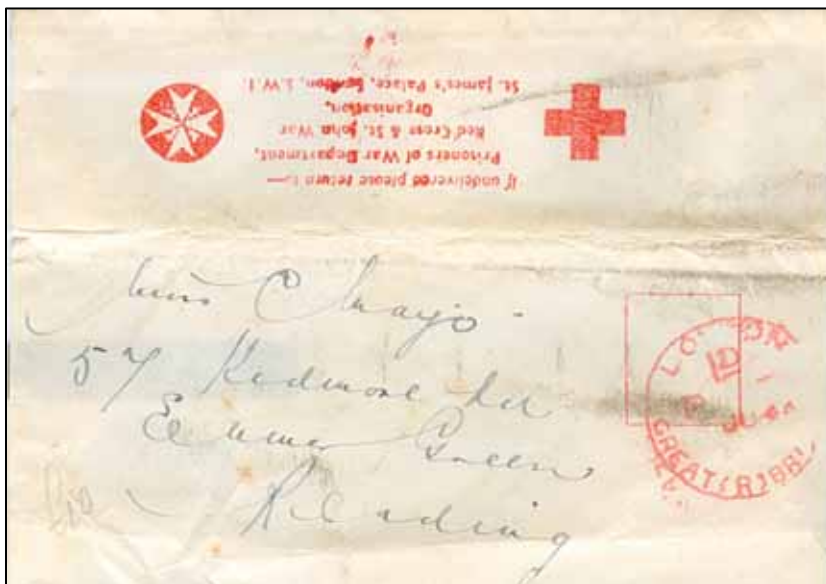 If undelivered please return to—
Prisoners of War Department,
Red Cross & St. John War
Organisation,
St. James's Palace, London, S.W.1.
Miss C Mayo
57 Kidmore Rd
Emmer Green
Reading
LONDON
GREAT